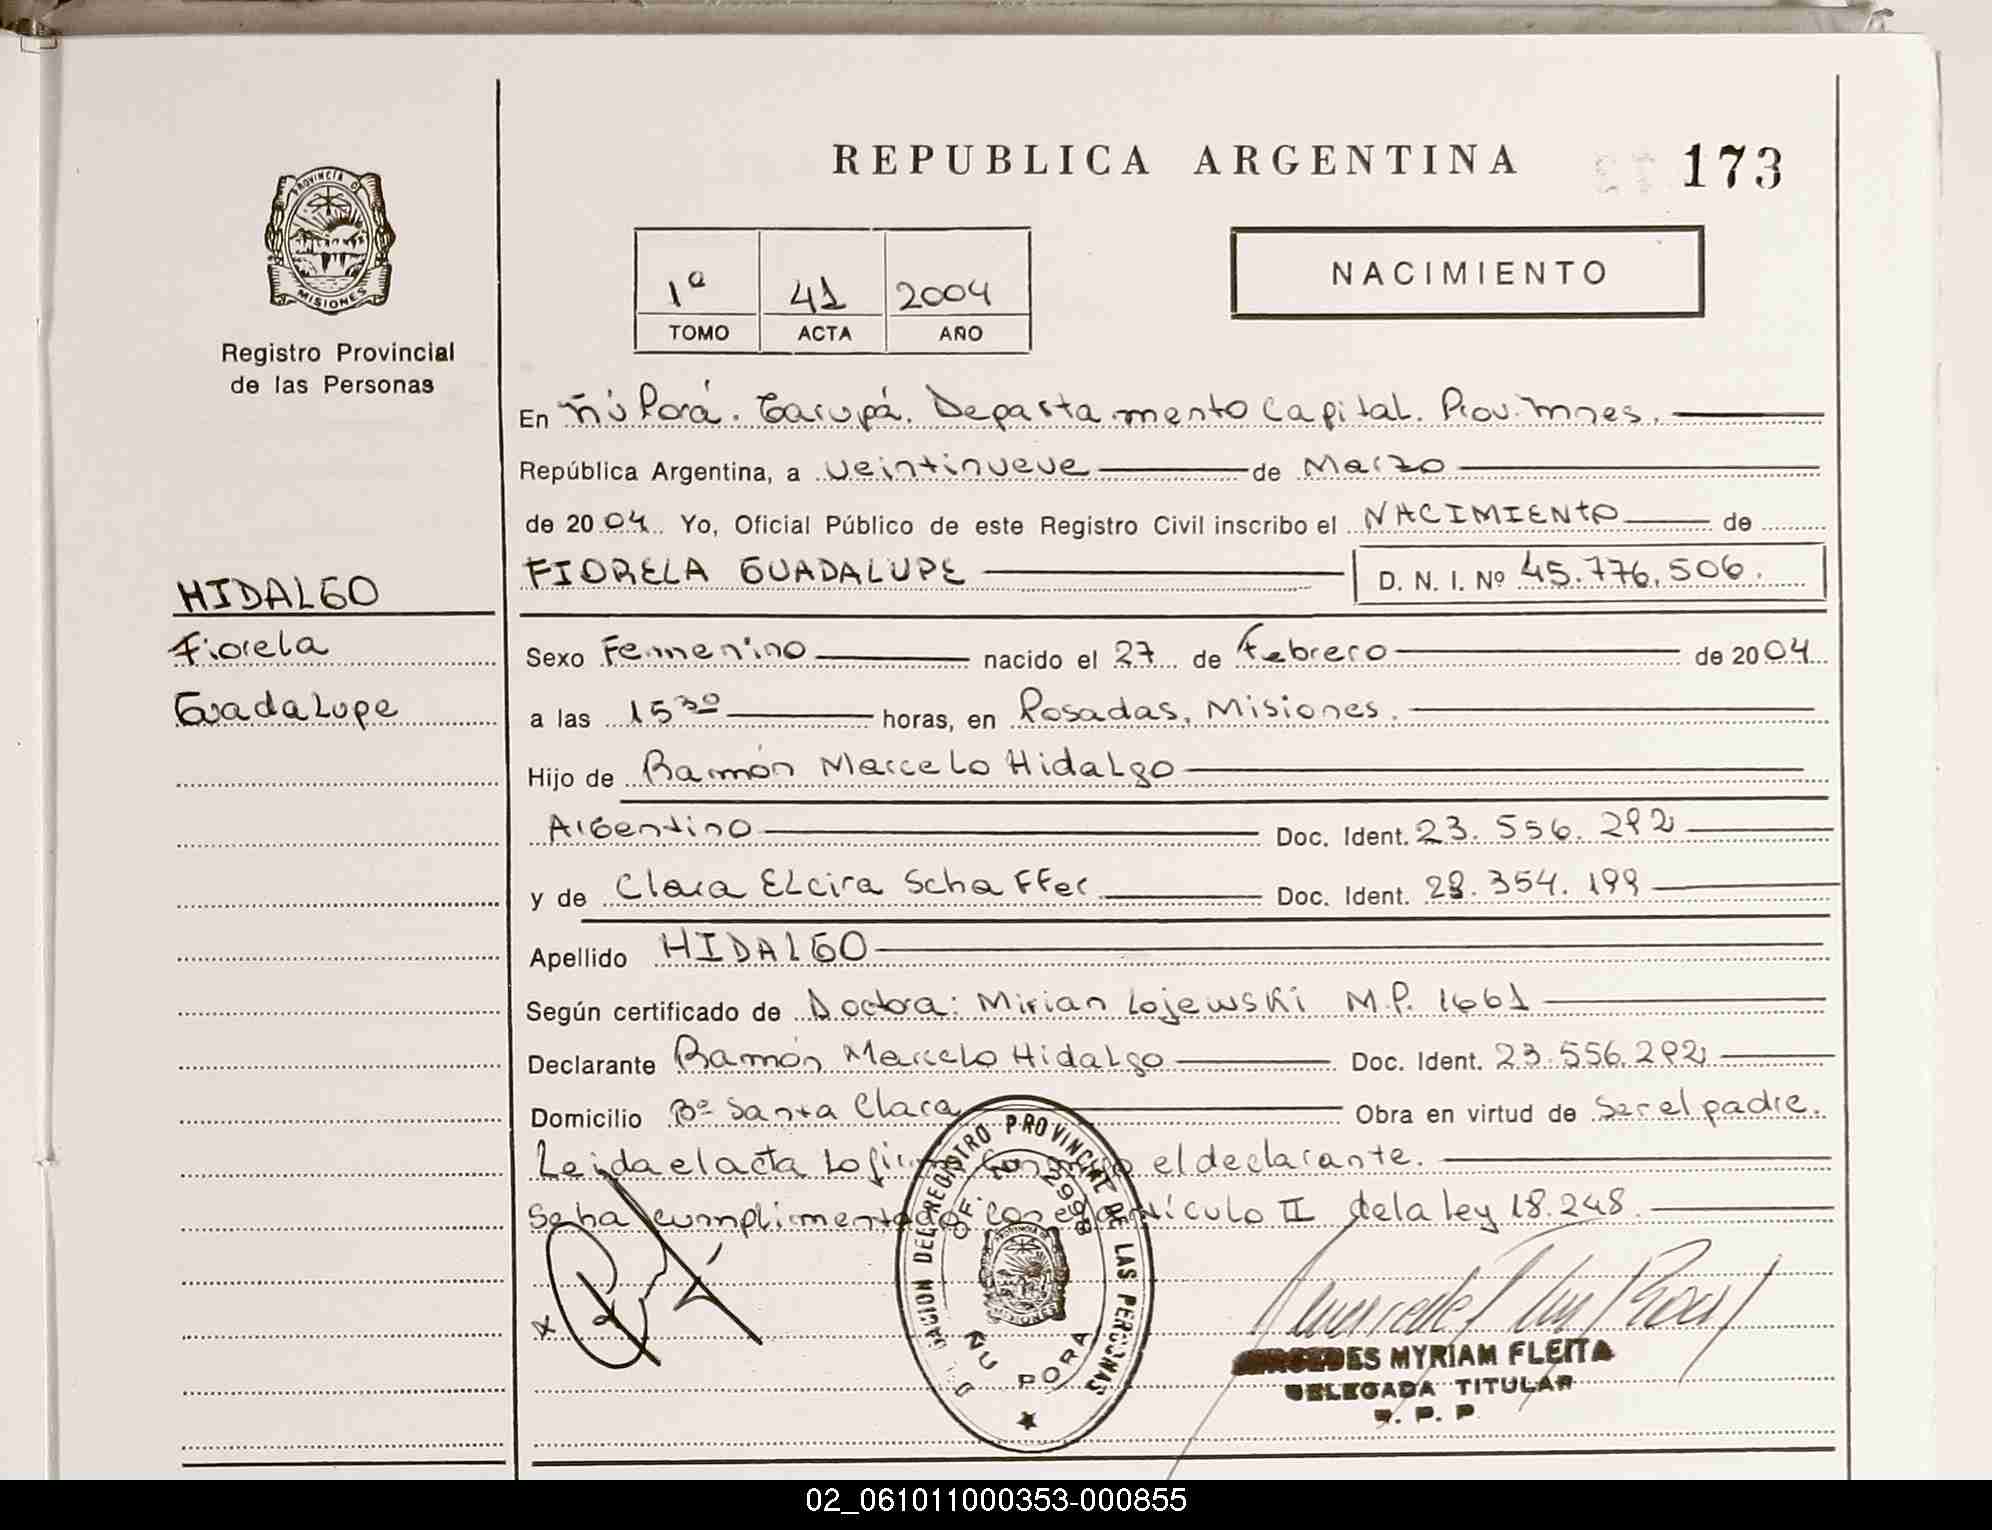 REPUBLICA ARGENTINA 173
PROVINCIA D
MISIONES
Registro Provincial
de las Personas
1ª 41 2004
TOMO ACTA AÑO
NACIMIENTO
En Ñú Porá. Garupá. Departamento Capital. Prov. Mnes.
República Argentina, a veintinueve de Marzo
de 2004. Yo, Oficial Público de este Registro Civil inscribo el NACIMIENTO de
FIORELA GUADALUPE D. N. I. Nº 45.776.506.
HIDALGO
Fiorela
Guadalupe
Sexo Femenino nacido el 27 de Febrero de 2004
a las 15 30 horas, en Posadas, Misiones.
Hijo de Ramón Marcelo Hidalgo
Argentino Doc. Ident. 23.556.292
y de Clara Elcira Schaffer Doc. Ident. 28.354.199
Apellido HIDALGO
Según certificado de Doctora: Mirian Lojewski M.P. 1661
Declarante Ramón Marcelo Hidalgo Doc. Ident. 23.556.292
Domicilio Bº Santa Clara Obra en virtud de ser el padre.
Leida el acta la firma conmigo el declarante.
Se ha cumplimentado con el artículo II de la ley 18.248.
DELEGACION DEL REGISTRO PROVINCIAL DE LAS PERSONAS
OFIC. 2998
ÑU PORA
MERCEDES MYRIAM FLEITA
DELEGADA TITULAR
R. P. P.
02_061011000353-000855